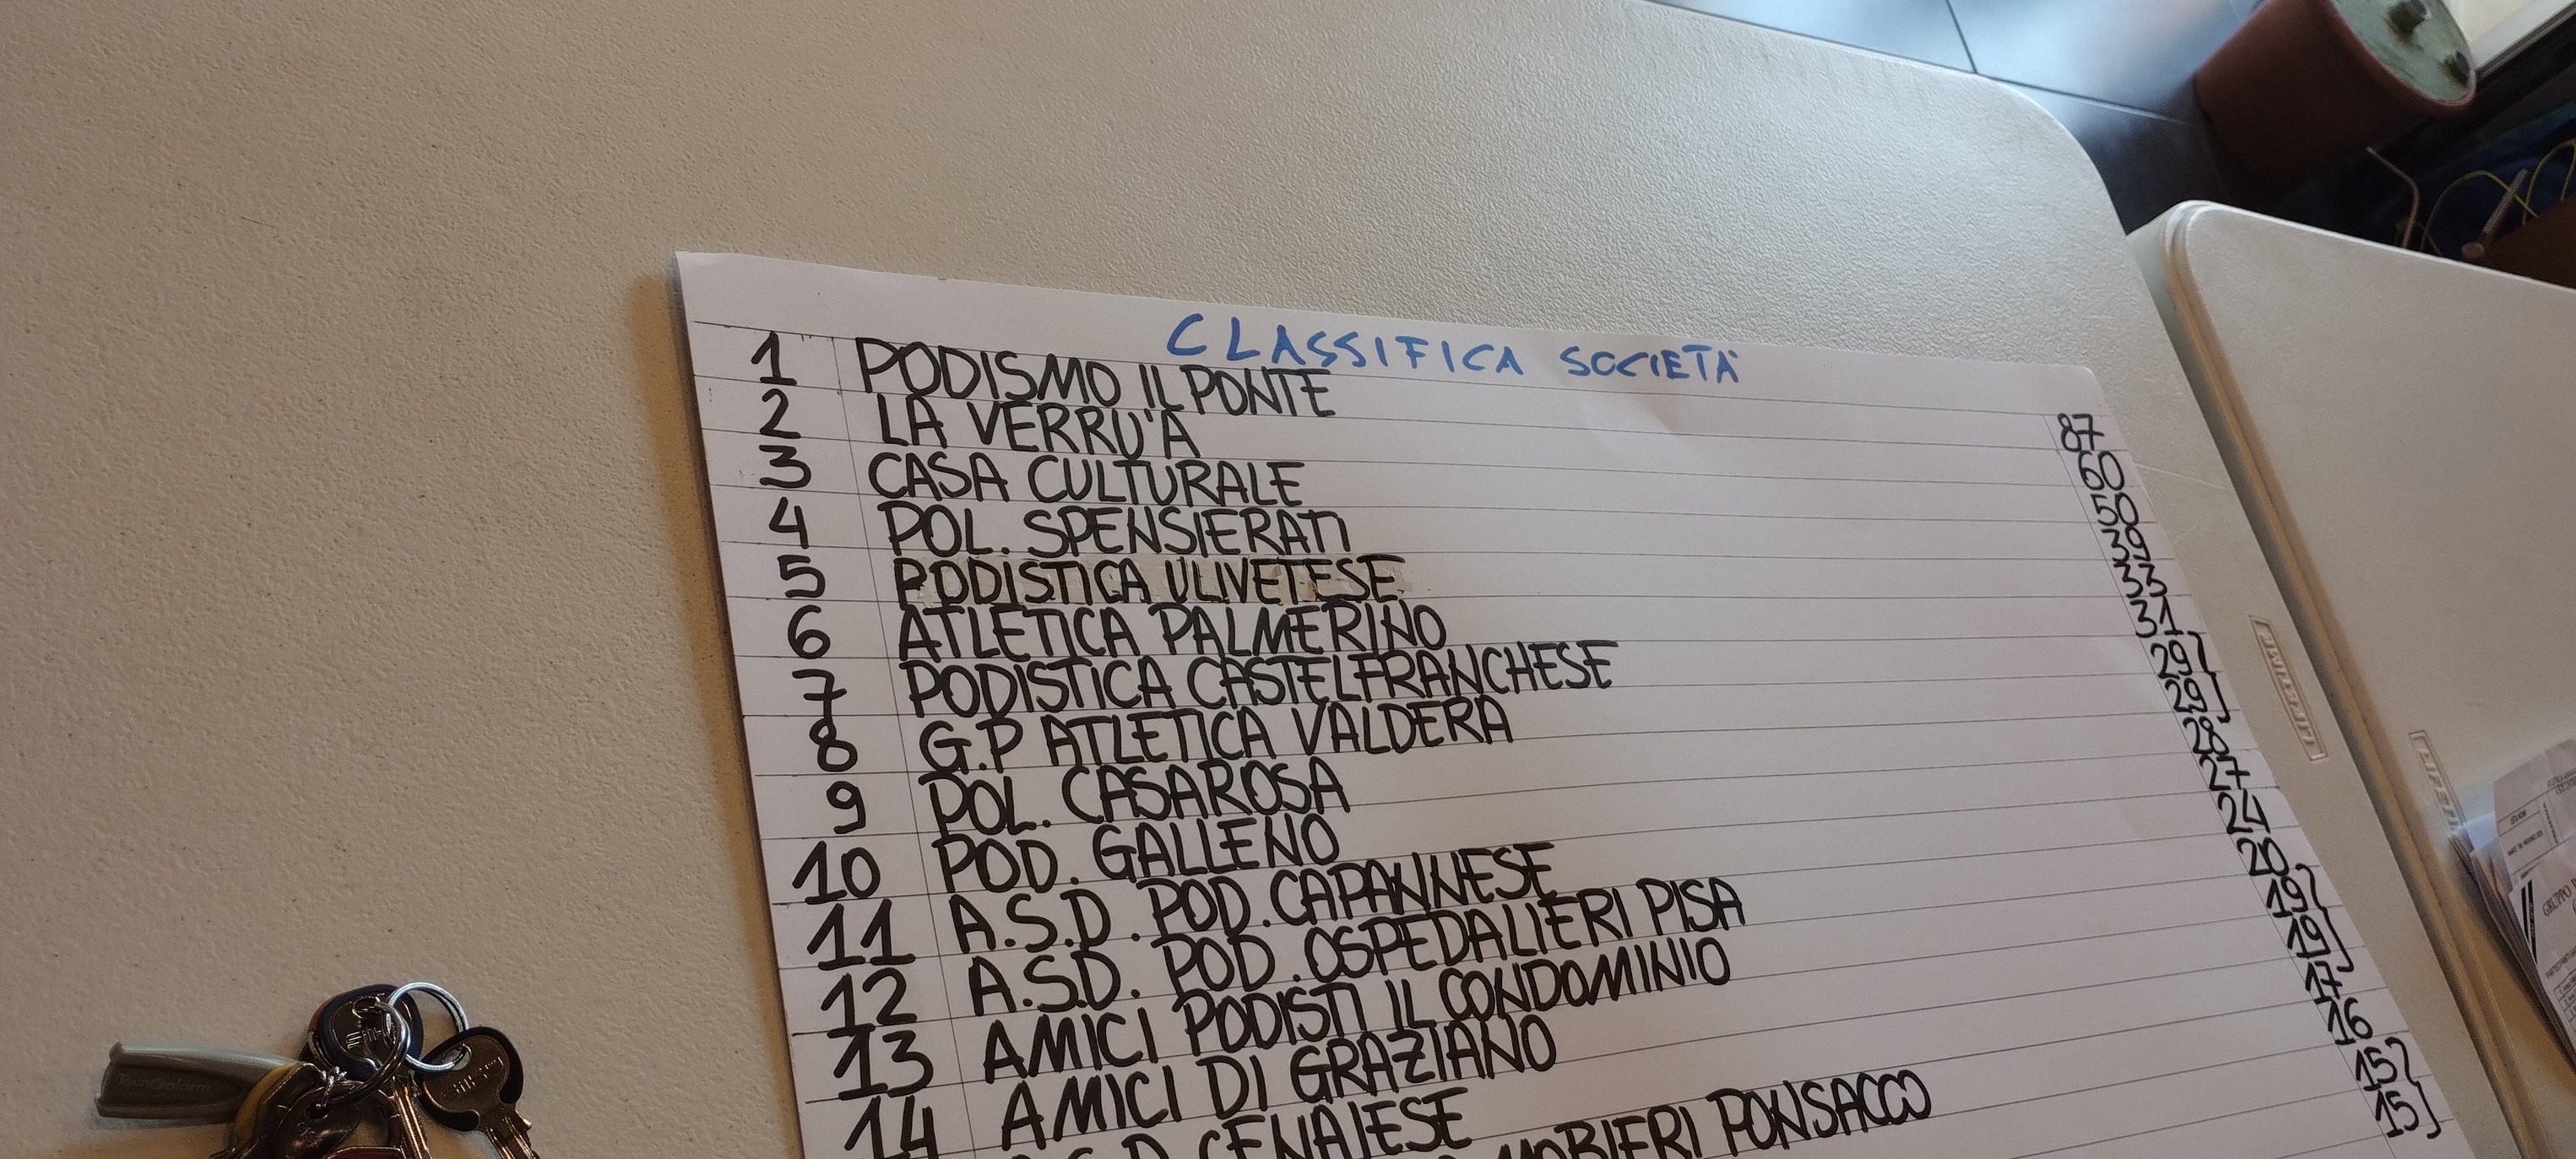 CLASSIFICA SOCIETÀ
1 PODISMO IL PONTE 87
2 LA VERRU'A 60
3 CASA CULTURALE 50
4 POL. SPENSIERATI 39
5 PODISTICA ULIVETESE 33
6 ATLETICA PALMERINO 31
7 PODISTICA CASTELFRANCHESE 29
8 G.P ATLETICA VALDERA 29
9 POL. CASAROSA 28
10 POD. GALLENO 27
11 A.S.D. POD. CAPANNESE 24
12 A.S.D. POD. OSPEDALIERI PISA 20
13 AMICI PODISTI IL CONDOMINIO 19
14 AMICI DI GRAZIANO 19
CENAIESE 17
MOBIERI PONSACCO 16
15
15
Tecnoalarm
GRUPPO